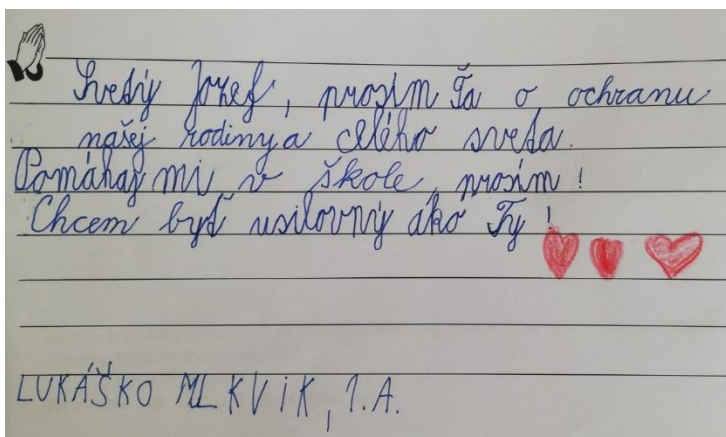 Svätý Jozef, prosím Ťa o ochranu
našej rodiny a celého sveta.
Pomáhaj mi v škole, prosím!
Chcem byť usilovný ako Ty!
LUKÁŠKO MLKVIK, 1.A.